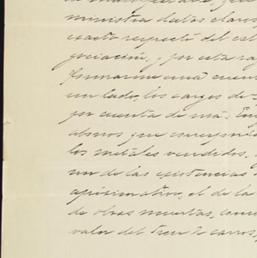 ministra datos claros
exacto respecto del est
gociación, y por esta ra
formarán una cuen
un lado, los cargos de
por cuenta de
abonos que
los metales vendidos.
un de las existencias
aproximativo, el de la
de obras muertas, como
valor del tren de carros,